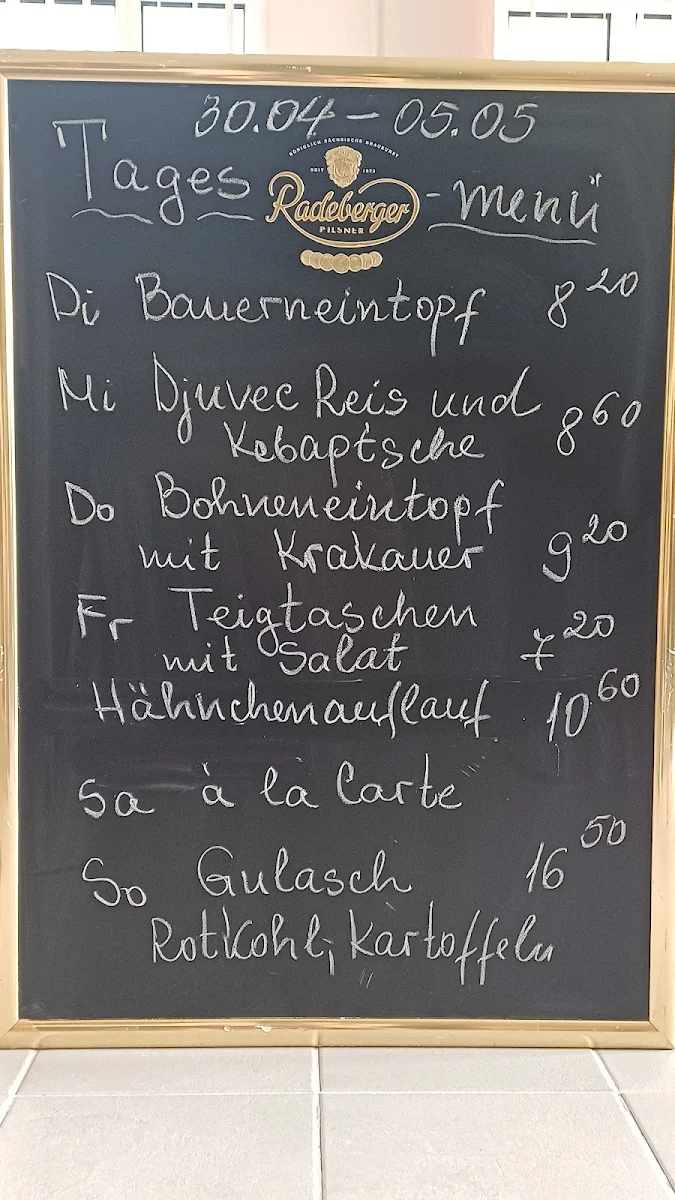 30.04 – 05.05
KÖNIGLICH SÄCHSISCHE BRAUKUNST
SEIT 1872
Tages - menü
Radeberger
PILSNER
Di Bauerneintopf 8 20
Mi Djuvec Reis und
Kebaptsche 8 60
Do Bohneneintopf
mit Krakauer 9 20
Fr Teigtaschen
mit Salat 7 20
Hähnchenauflauf 10 60
Sa à la Carte
So Gulasch 16 50
Rotkohl, Kartoffeln